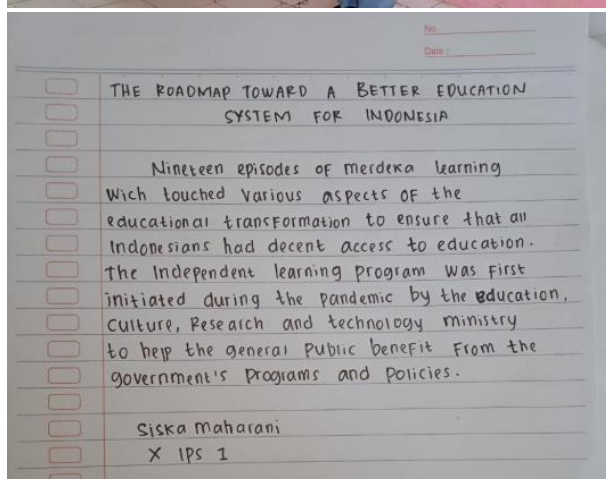 No.
Date :
THE ROADMAP TOWARD A BETTER EDUCATION
SYSTEM FOR INDONESIA
Nineteen episodes of merdeka learning
Wich touched various aspects of the
educational transformation to ensure that all
Indonesians had decent access to education.
The Independent learning program was first
initiated during the pandemic by the education,
Culture, Research and technology ministry
to help the general public benefit from the
government's programs and policies.
Siska maharani
X IPS 1